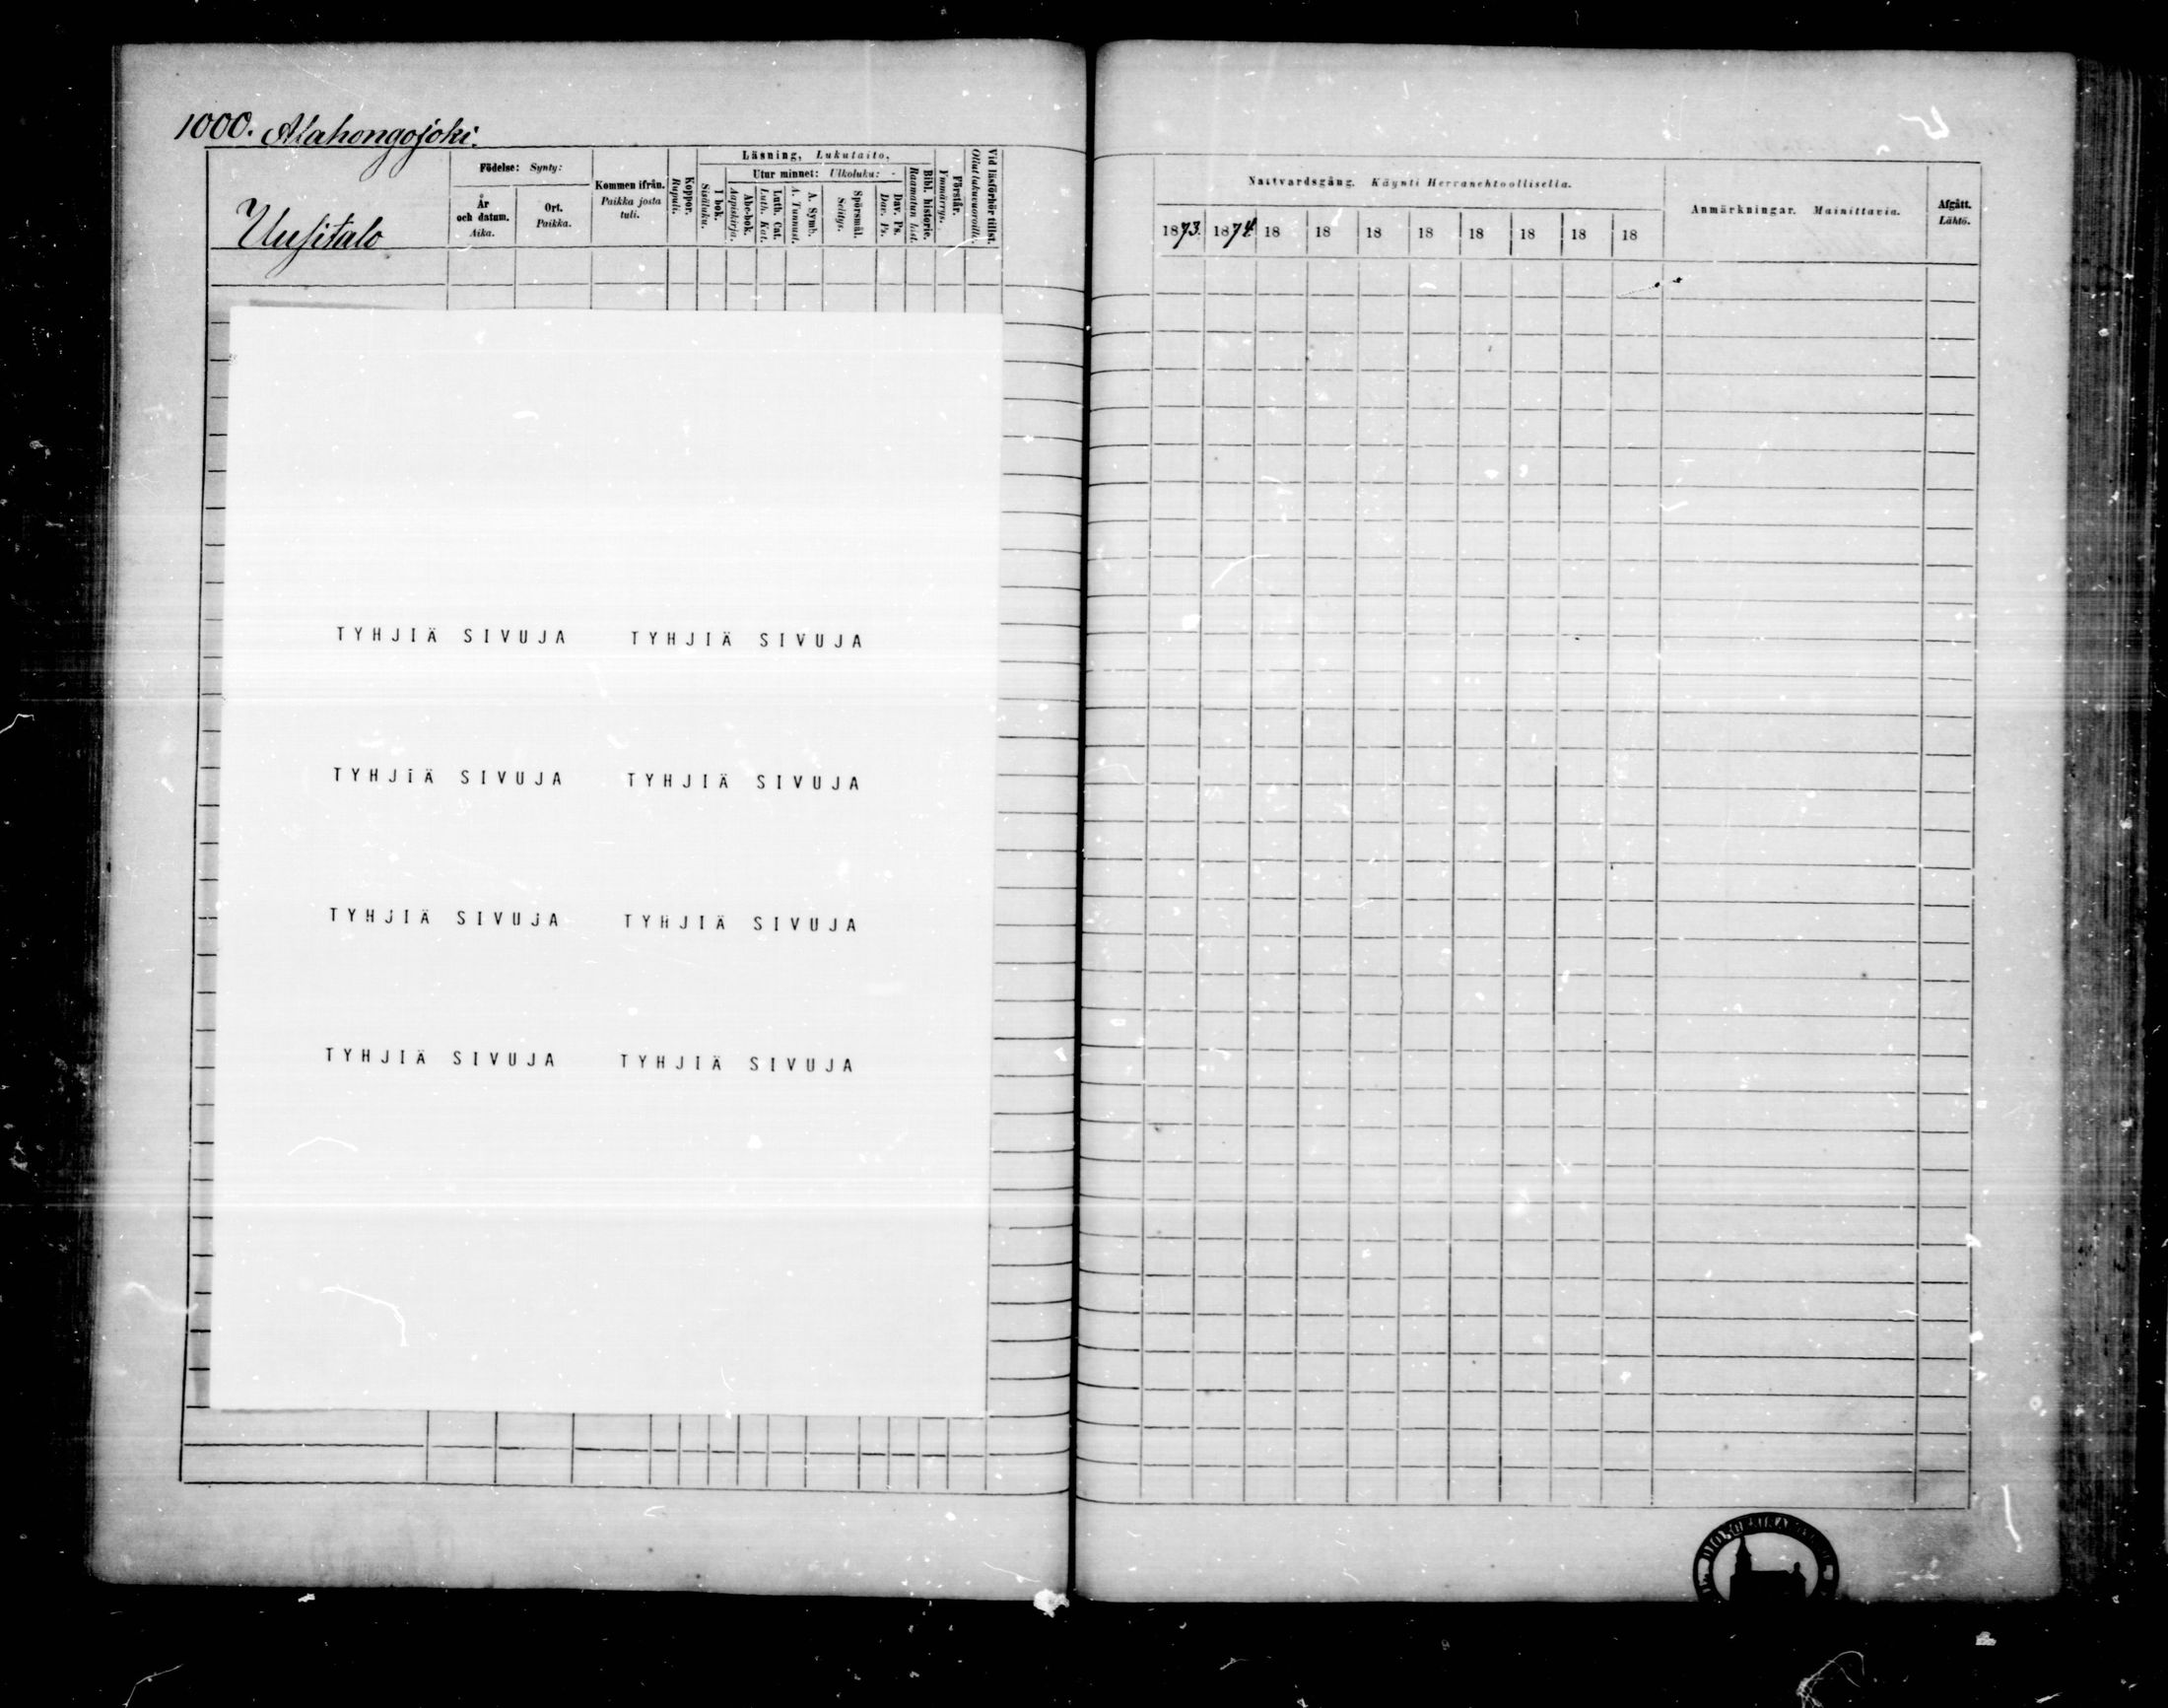 1000. Alahongojoki.
Uusitalo
Födelse: Synty:
År och datum. Aika.
Ort. Paikka.
Kommen ifrån. Paikka josta tuli.
Koppor. Rupuli.
Läsning, Lukutaito,
I bok. Sisäluku.
Utur minnet: Ulkoluku:
Abc-bok. Aapiskirja.
Luth. Cat. Luth. Kat.
A. Symb. A. Tunnust.
Spörsmål. Selitys.
Dav. Ps. Dav. Ps.
Bibl. historie. Raamatun hist.
Förstår. Ymmärrys.
Vid läsförhör tillst. Ollut lukuvuoroilla.
TYHJIÄ SIVUJA TYHJIÄ SIVUJA
TYHJIÄ SIVUJA TYHJIÄ SIVUJA
TYHJIÄ SIVUJA TYHJIÄ SIVUJA
TYHJIÄ SIVUJA TYHJIÄ SIVUJA
Nattvardsgång. Käynti Herranehtoollisella.
1873. 1874. 18 18 18 18 18 18 18 18
Anmärkningar. Mainittavia.
Afgått. Lähtö.